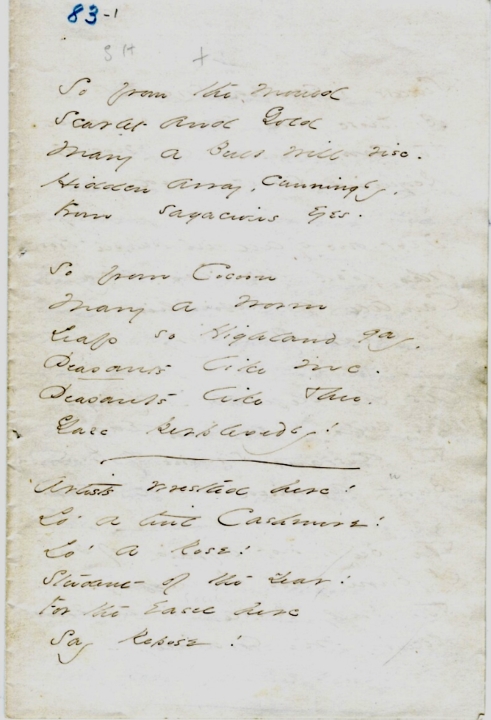 83-1
SH +
So from the mould
Scarlet and Gold
Many a Bulb will rise.
Hidden away, Cunningly,
From Sagacious Eyes.
So from Cocoon
Many a Worm
Leap so Highland gay,
Peasants like me.
Peasants like Thee.
Gaze perplexedly!
Artists wrestled here!
Lo' a tint Cashmere!
Lo' a Rose!
Student of the Year!
For the Easel here
Say Repose!